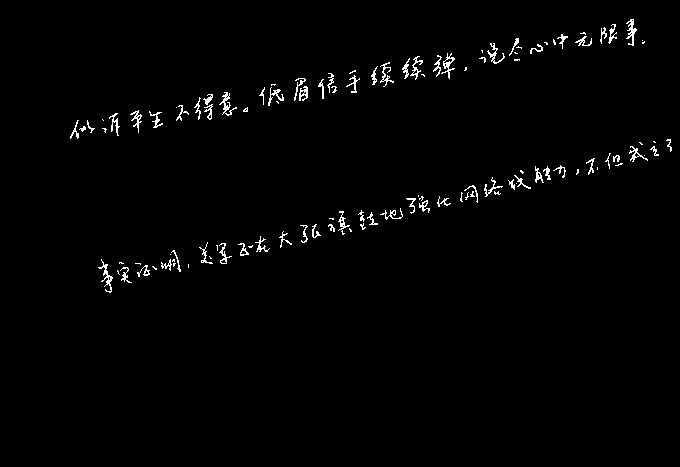 似诉平生不得意。低眉信手续续弹，说尽心中无限事。
事实证明，美军正在大张旗鼓地强化网络战能力，不但成立了